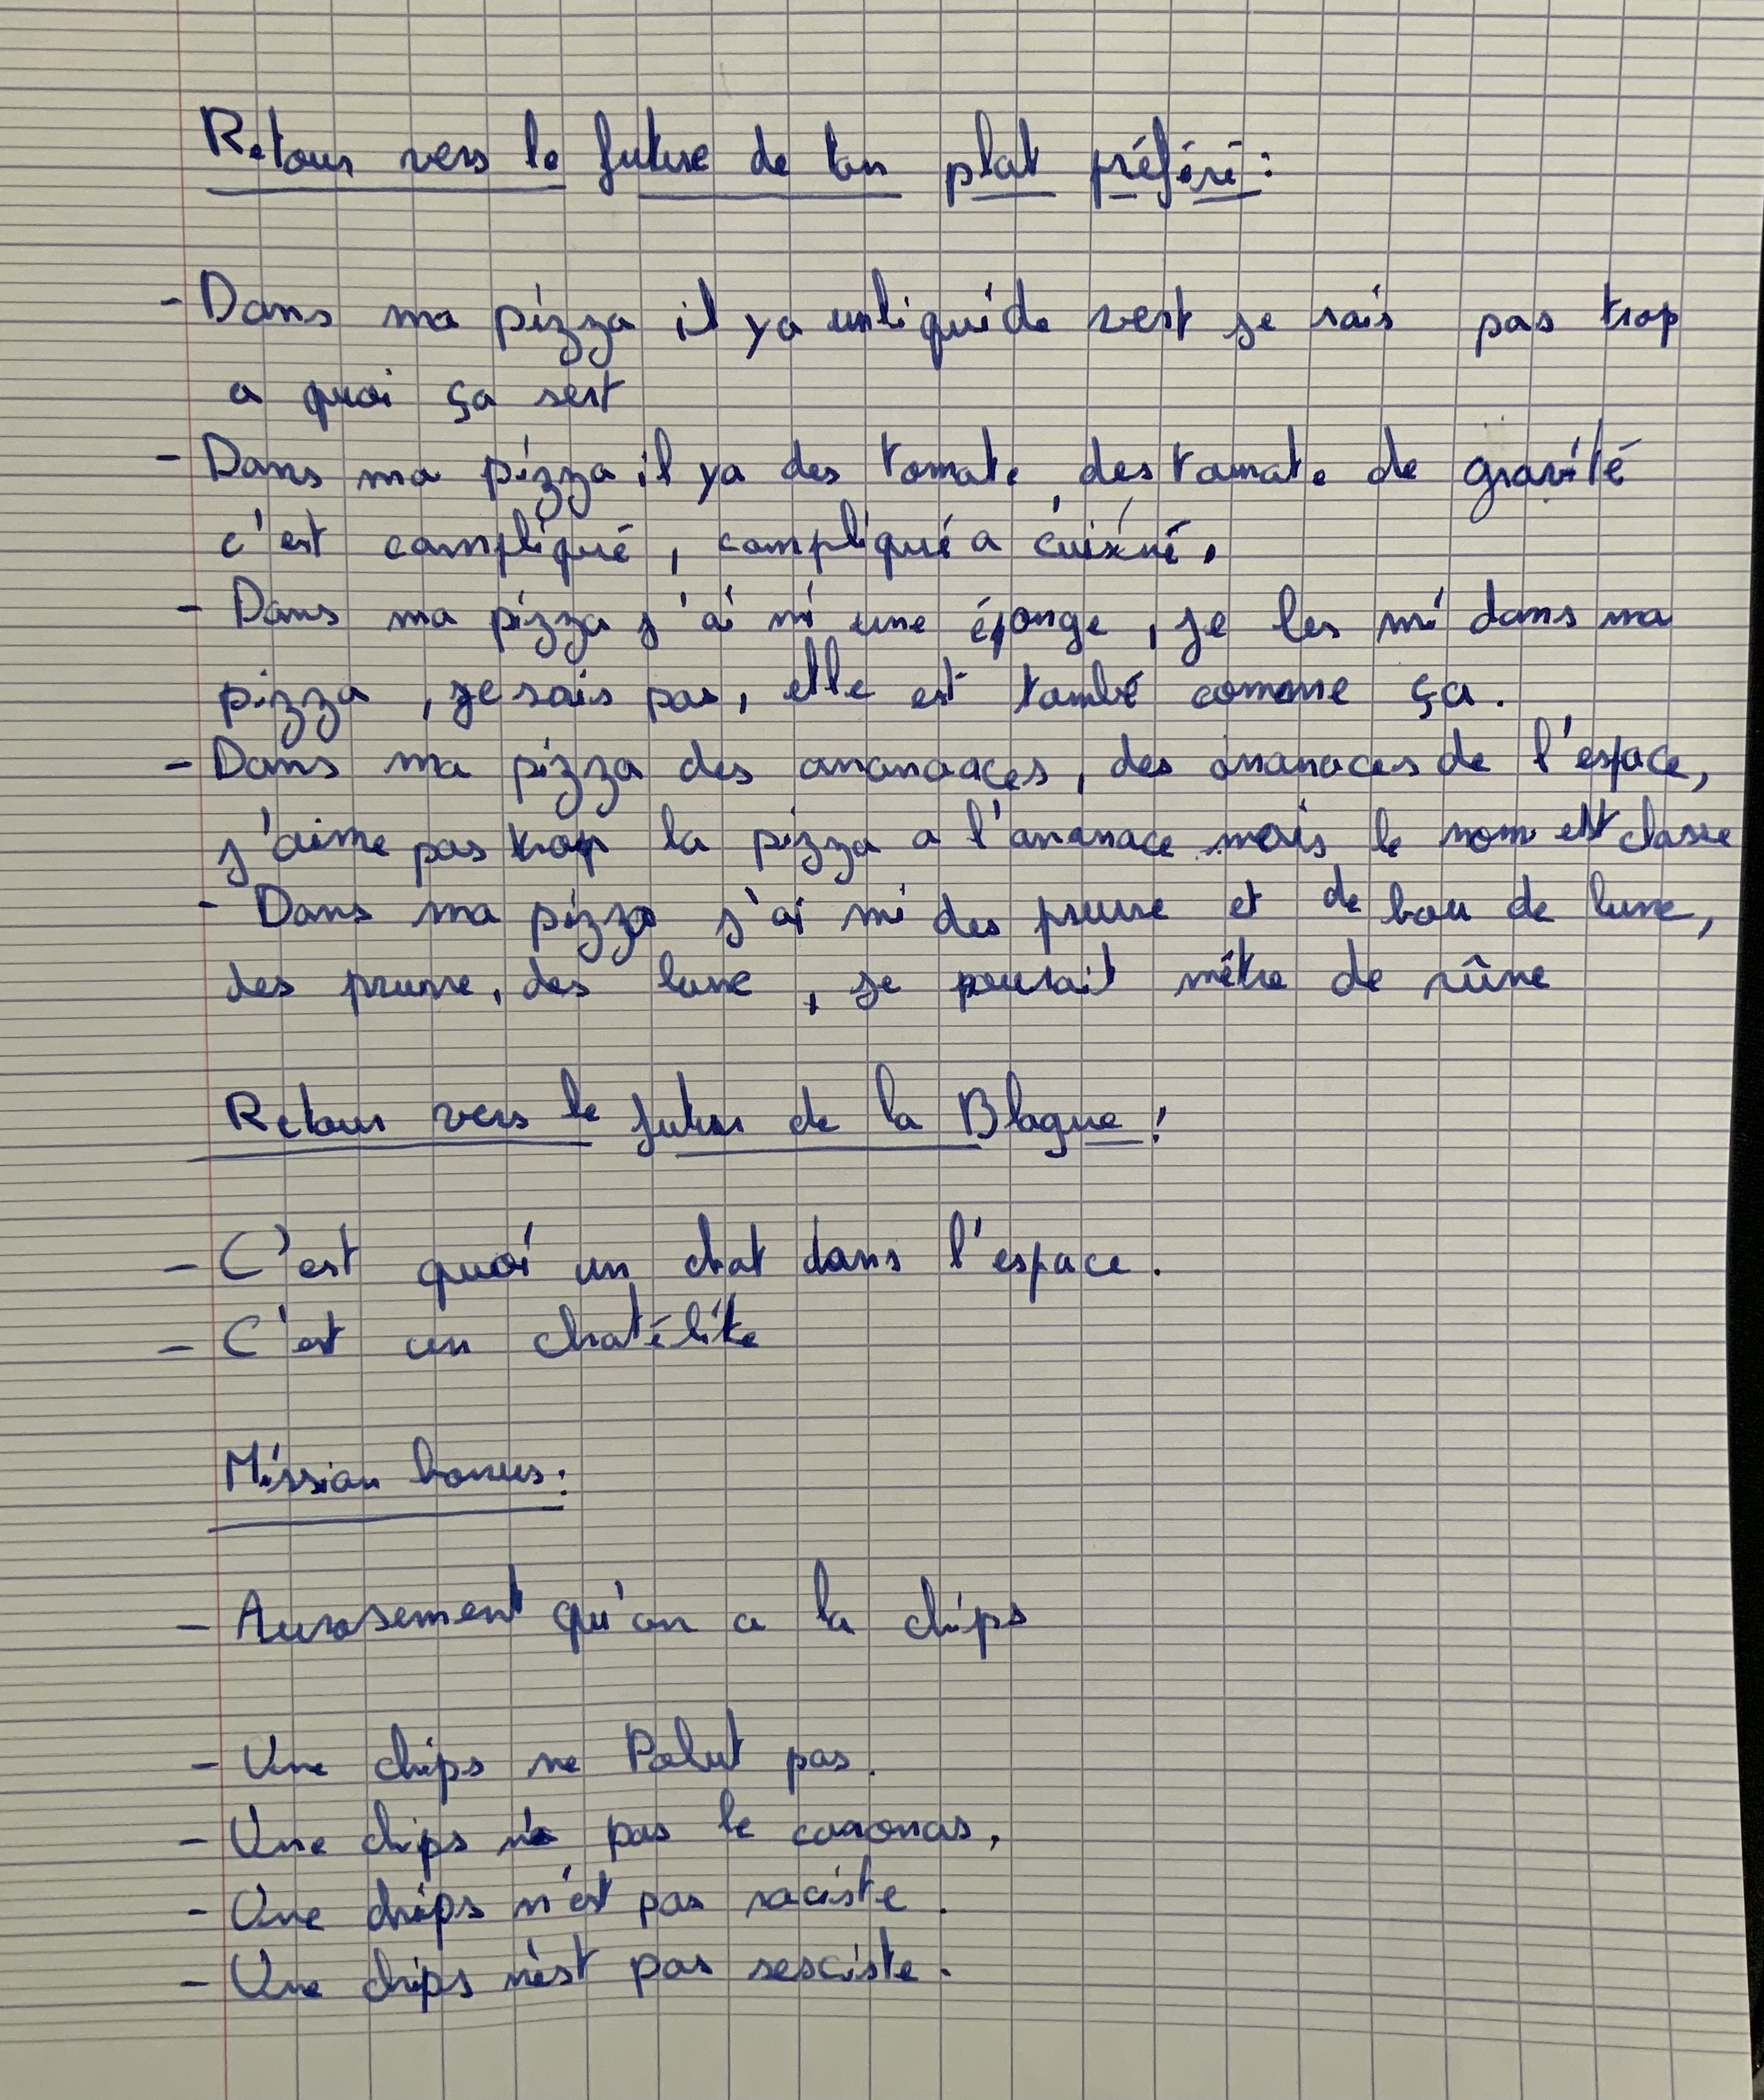 Retour vers le future de ton plat préféré :
- Dans ma pizza il y a un liquide vert je sais pas trop
a quoi ça sert
- Dans ma pizza il y a des tomate, des tomate de gravité
c'est compliqué, compliqué a cuisiné.
- Dans ma pizza j'ai mi une éponge, je les mi dans ma
pizza, je sais pas, elle est tombé comme ça.
- Dans ma pizza des ananaaces, des ananaces de l'espace,
j'aime pas trop la pizza a l'ananace mais le nom est classe
- Dans ma pizza j'ai mi des prune et de bou de lune,
des prune, des lune, je pourait mêtre de rûne
Retour vers le futur de la Blague !
- C'est quoi un chat dans l'espace.
- C'est un chatélite
Mission bonus :
- Aurosement qu'on a la chips
- Une chips ne Polut pas.
- Une chips n'a pas le coronas,
- Une chips n'est pas raciste.
- Une chips n'est pas sesciste.